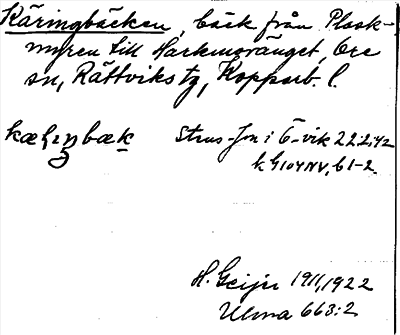 Käringbäcken, bäck från Plask-
myren till Harkmoränget, Ore
sn, Rättviks tg, Kopparb. l.
kæ bæk Strus-Jon i Ö-vik 22.2.42
k G104NV, b1-2.
H. Geijer 1911, 1922
Ulma 663:2